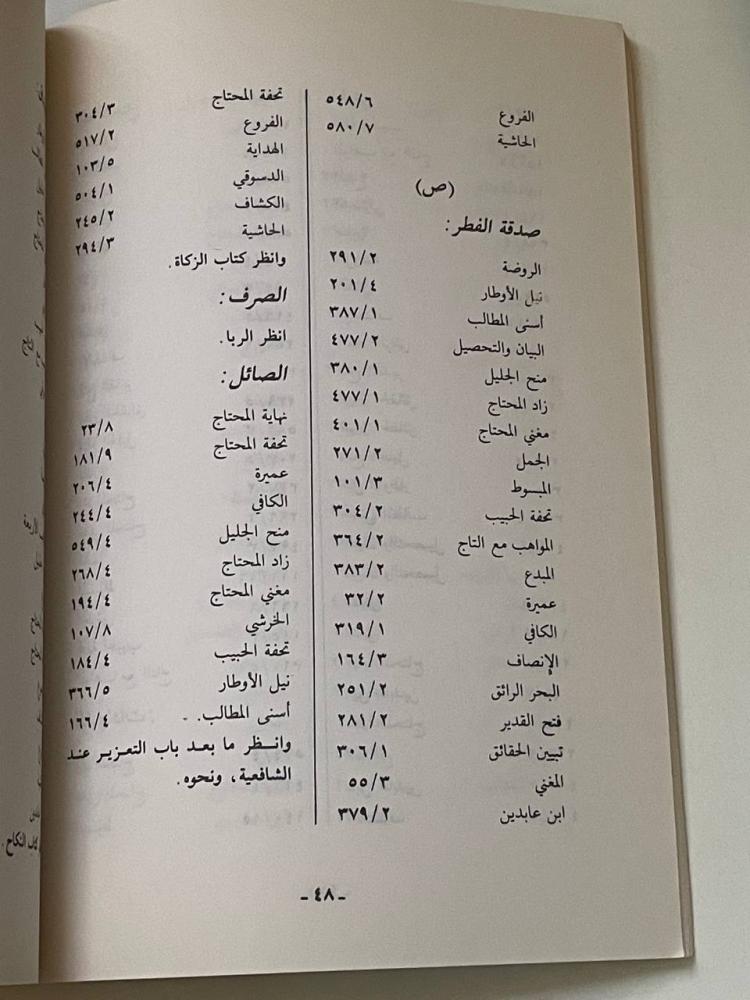 الفروع ٥٤٨/٦
الحاشية ٥٨٠/٧
(ص)
صدقة الفطر:
الروضة ٢٩١/٢
نيل الأوطار ٢٠١/٤
أسنى المطالب ٣٨٧/١
البيان والتحصيل ٤٧٧/٢
منح الجليل ٣٨٠/١
زاد المحتاج ٤٧٧/١
مغني المحتاج ٤٠١/١
الجمل ٢٧١/٢
المبسوط ١٠١/٣
تحفة الحبيب ٣٠٤/٢
المواهب مع التاج ٣٦٤/٢
المبدع ٣٨٣/٢
عميرة ٣٢/٢
الكافي ٣١٩/١
الإنصاف ١٦٤/٣
البحر الرائق ٢٥١/٢
فتح القدير ٢٨١/٢
تبيين الحقائق ٣٠٦/١
المغني ٥٥/٣
ابن عابدين ٣٧٩/٢
تحفة المحتاج ٣٠٤/٣
الفروع ٥١٧/٢
الهداية ١٠٣/٥
الدسوقي ٥٠٤/١
الكشاف ٢٤٥/٢
الحاشية ٢٩٤/٣
وانظر كتاب الزكاة.
الصرف:
انظر الربا.
الصائل:
نهاية المحتاج ٢٣/٨
تحفة المحتاج ١٨١/٩
عميرة ٢٠٦/٤
الكافي ٢٤٤/٤
منح الجليل ٥٤٩/٤
زاد المحتاج ٢٦٨/٤
مغني المحتاج ١٩٤/٤
الخرشي ١٠٧/٨
تحفة الحبيب ١٨٤/٤
نيل الأوطار ٣٦٦/٥
أسنى المطالب. ١٦٦/٤
وانـظر ما بعـد باب التعزيـر عنـد
الشافعية، ونحوه.
-٤٨-
كتاب النكاح.